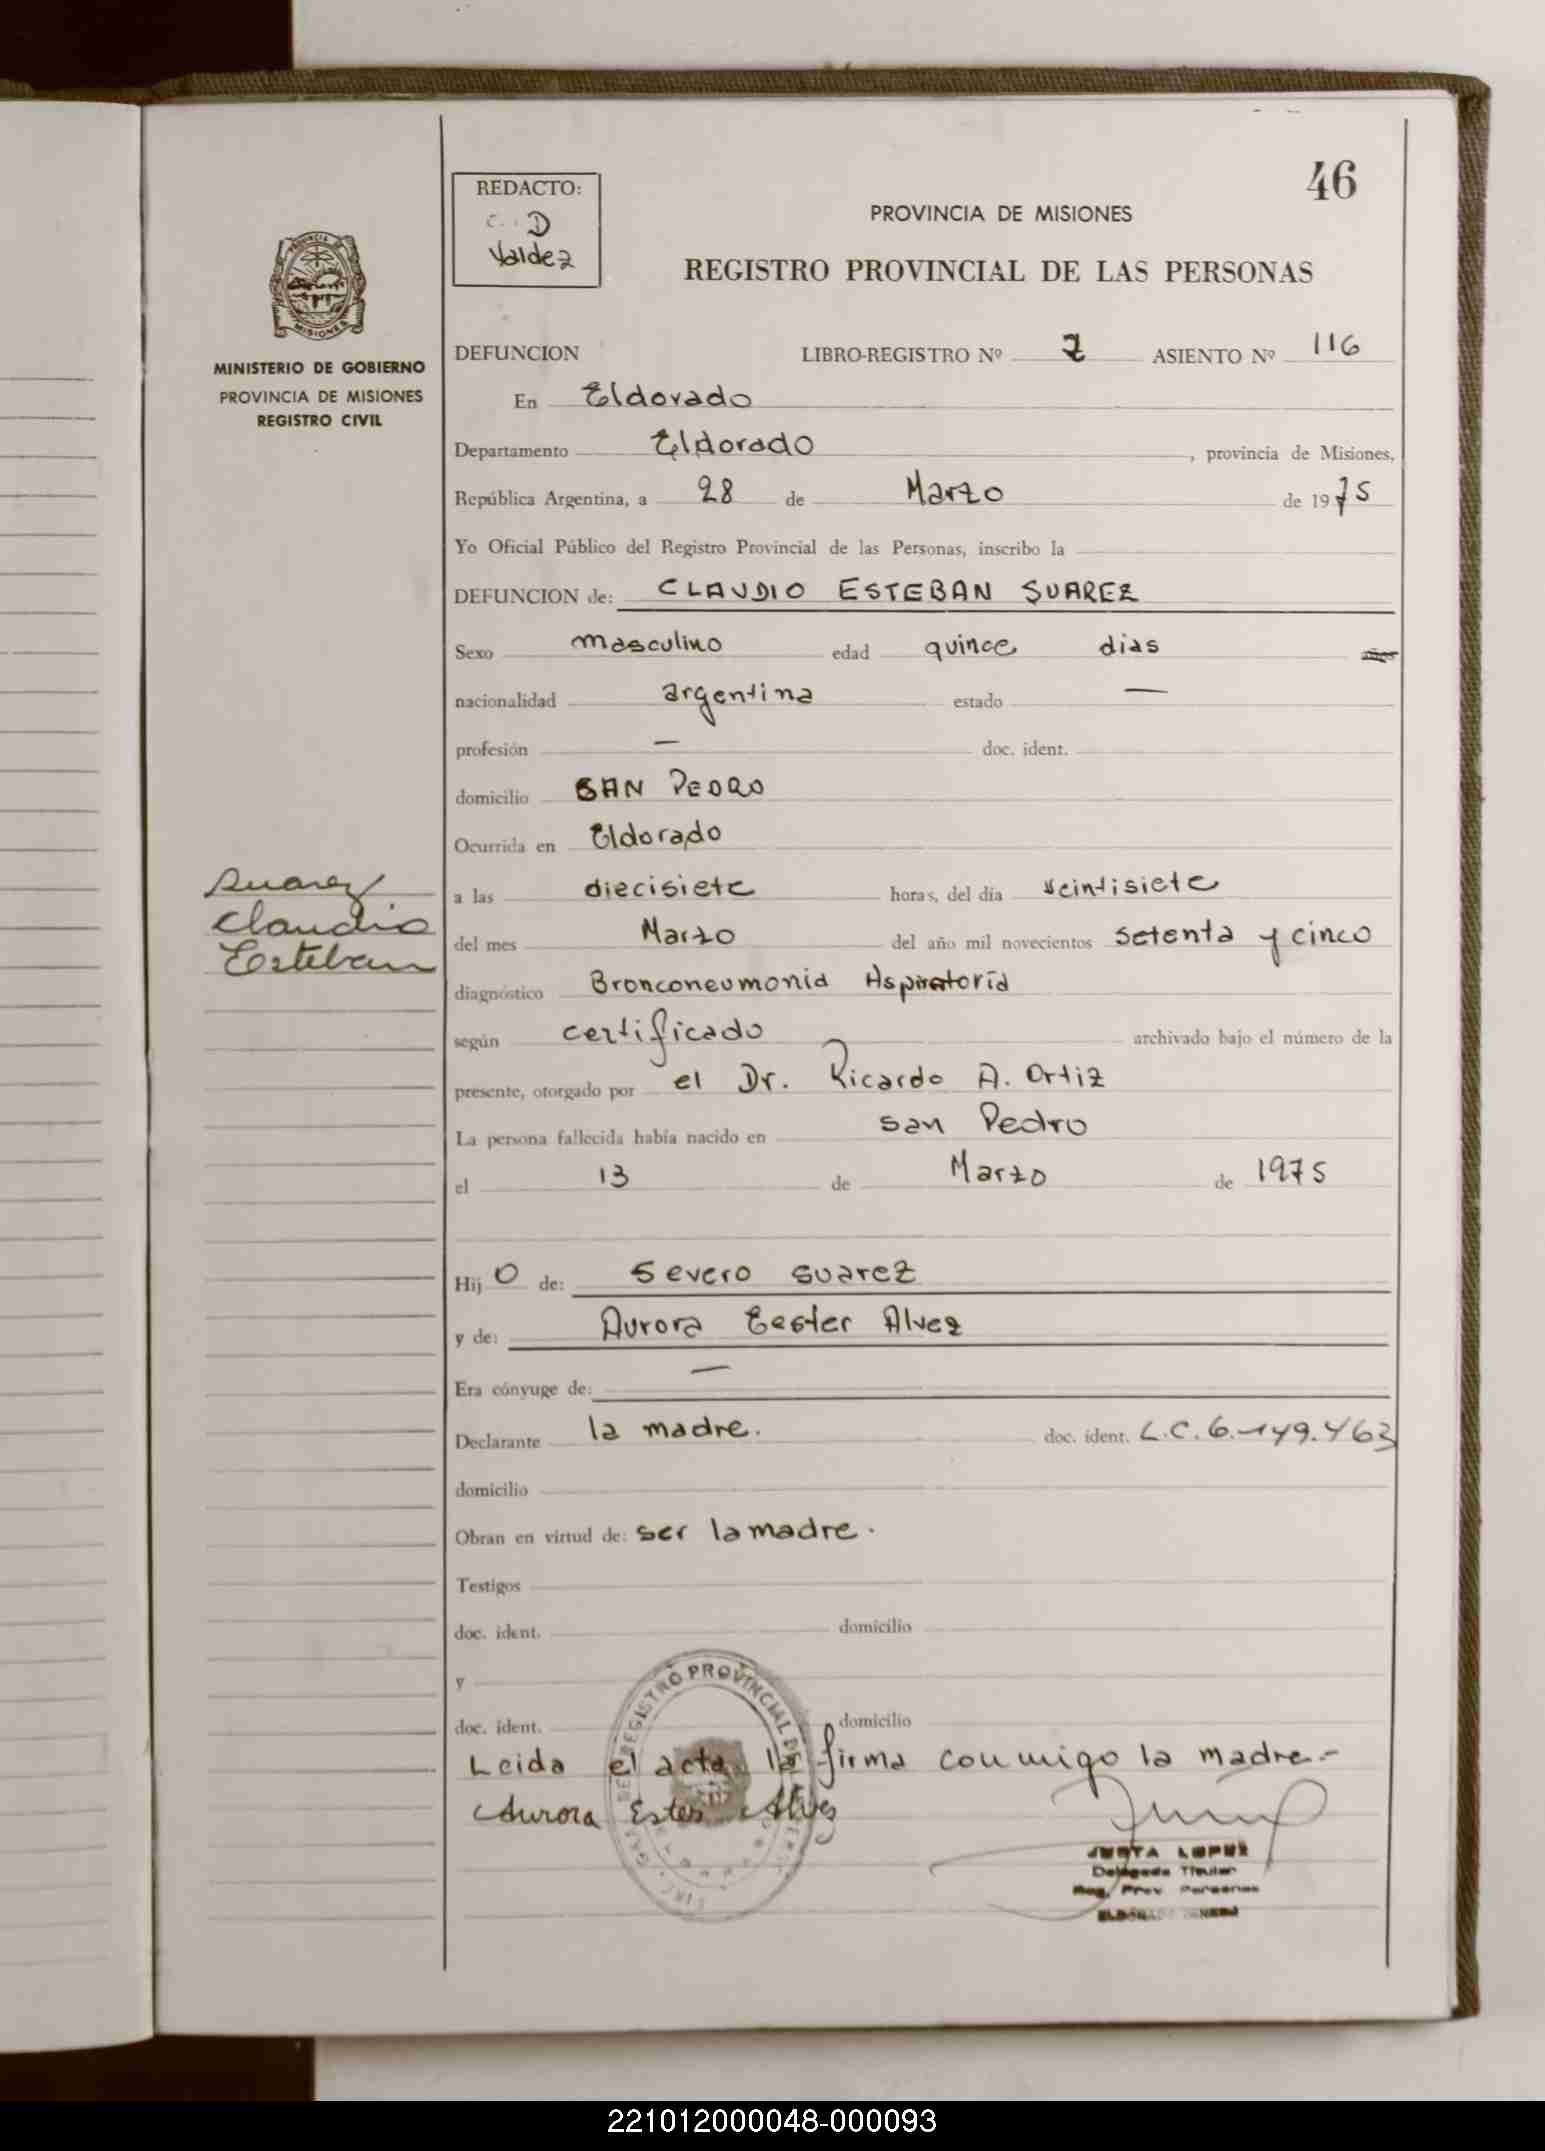 46
REDACTO:
D
Valdez
PROVINCIA DE MISIONES
REGISTRO PROVINCIAL DE LAS PERSONAS
MINISTERIO DE GOBIERNO
PROVINCIA DE MISIONES
REGISTRO CIVIL
DEFUNCION LIBRO-REGISTRO Nº 7 ASIENTO Nº 116
En Eldorado
Departamento Eldorado, provincia de Misiones,
República Argentina, a 28 de Marzo de 1975
Yo Oficial Público del Registro Provincial de las Personas, inscribo la
DEFUNCION de: CLAUDIO ESTEBAN SUAREZ
Sexo masculino edad quince dias años
nacionalidad argentina estado —
profesión — doc. ident.
domicilio SAN PEDRO
Ocurrida en Eldorado
Suarez
Claudio
Esteban
a las diecisiete horas, del día veintisiete
del mes Marzo del año mil novecientos setenta y cinco
diagnóstico Bronconeumonia Aspiratoria
según certificado archivado bajo el número de la
presente, otorgado por el Dr. Ricardo A. Ortiz
La persona fallecida había nacido en San Pedro
el 13 de Marzo de 1975
Hijo de: Severo Suarez
y de: Aurora Eester Alvez
Era cónyuge de: —
Declarante la madre. doc. ident. L.C. 6.149.463
domicilio
Obran en virtud de: ser la madre.
Testigos
doc. ident. domicilio
y
doc. ident. domicilio
Leida el acta la firma conmigo la madre.-
Aurora Ester Alves
REGISTRO PROVINCIAL DE
JUSTA LOPEZ
Delegada Titular
Reg. Prov. Personas
221012000048-000093